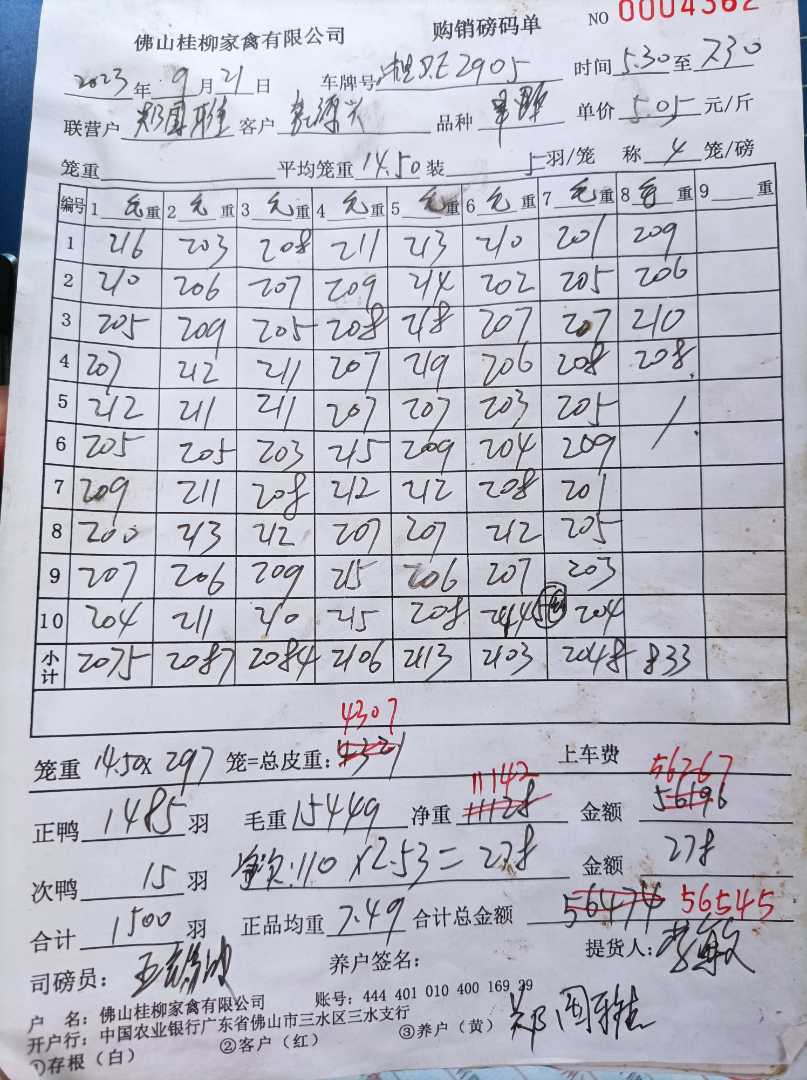 佛山桂柳家禽有限公司 购销磅码单 NO 0004362
2023年9月21日 车牌号 E2905 时间5.30至730
联营户郑国雅 客户 品种 单价5.05元/斤
笼重 平均笼重14.50装5羽/笼 称4笼/磅
编号 1毛重 2毛重 3毛重 4毛重 5毛重 6毛重 7毛重 8毛重 9重
1 216 203 208 211 213 210 201 209
2 210 206 207 209 214 202 205 206
3 205 209 205 208 218 207 207 210
4 207 212 211 207 219 206 208 208
5 212 211 211 207 207 203 205 /
6 205 205 203 215 209 204 209
7 209 211 208 212 212 208 201
8 200 213 212 207 207 212 205
9 207 206 209 215 206 207 203
10 204 211 210 215 208 204
小计 2075 2087 2084 2106 2113 2103 2048 833
4307
笼重14.50×297笼=总皮重:4321 上车费
11142 56267
正鸭1485羽 毛重15449 净重11128 金额56196
次鸭15羽 :110×2.53=278 金额278
合计1500羽 正品均重7.49 合计总金额56474 56545
司磅员: 养户签名: 提货人:李敏
户 名:佛山桂柳家禽有限公司 账号:444 401 010 400 169 29
开户行:中国农业银行广东省佛山市三水区三水支行 郑国雅
①存根(白) ②客户(红) ③养户(黄)